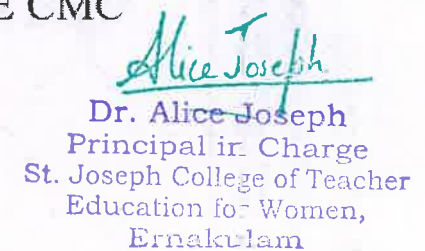 E CMC
Alice Joseph
Dr. Alice Joseph
Principal in Charge
St. Joseph College of Teacher
Education for Women,
Ernakulam